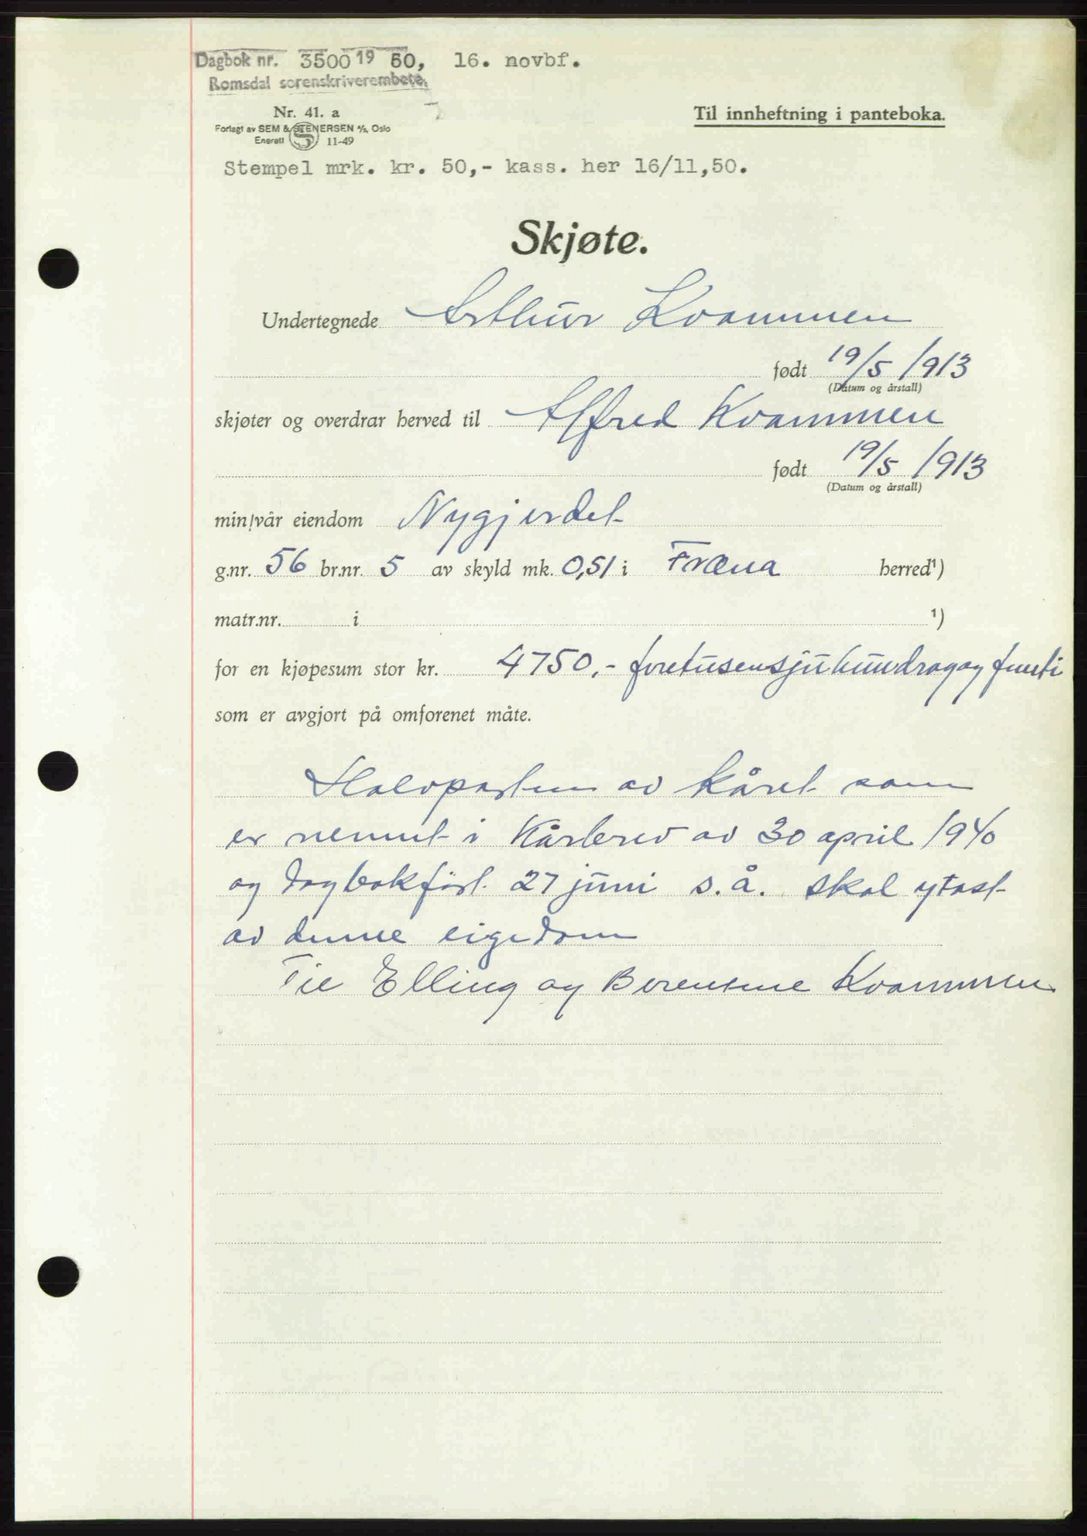 Dagbok nr. 3500 19 50, 16. novbf.
Romsdal sorenskriverembete.
Nr. 41. a
Til innheftning i panteboka.
Forlagt av SEM & STENERSEN A/S, Oslo
Enerett S 11-49
Stempel mrk. kr. 50,- kass. her 16/11,50.
Skjøte.
Undertegnede Arthur Kvammen
født 19/5 1913
(Datum og årstall)
skjøter og overdrar herved til Alfred Kvammen
født 19/5 1913
(Datum og årstall)
min/vår eiendom Nygjerdet
g.nr. 56 br.nr. 5 av skyld mk. 0,51 i Fræna herred¹)
matr.nr. i ¹)
for en kjøpesum stor kr. 4750.- firetusensjuhundragog femti
som er avgjort på omforenet måte.
Halvparten av kåret som
er nemnt i Kårbrev av 30 april 1940
og dagbokført 27 juni s.å. skal ytast
av denne eigedom
Til Elling og Berentine Kvammen